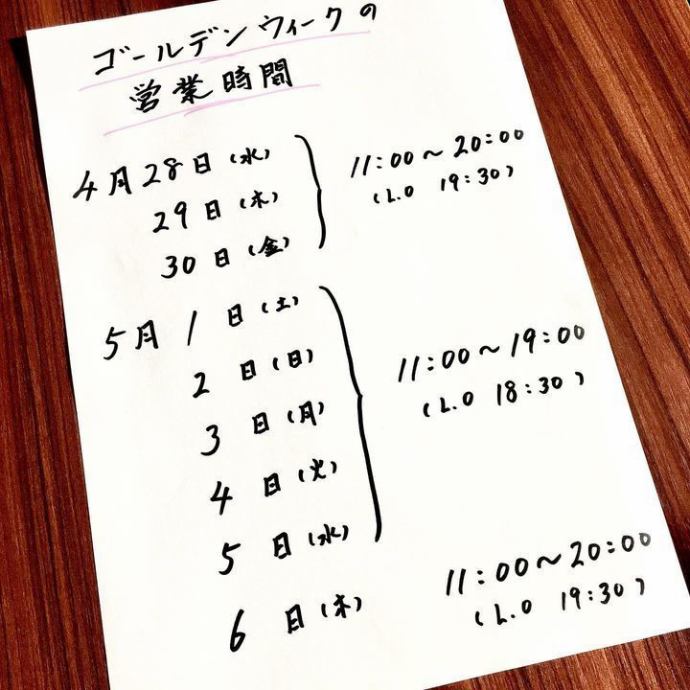 ゴールデンウィークの
営業時間
4月28日(水)
29日(木)
30日(金)
11:00～20:00
(L.O 19:30)
5月1日(土)
2日(日)
3日(月)
4日(火)
5日(水)
11:00～19:00
(L.O 18:30)
6日(木)
11:00～20:00
(L.O 19:30)